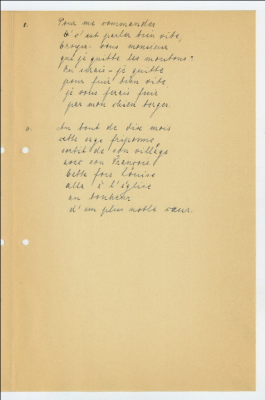 Pour me commander
C'est parler bien vite,
Croyez-vous monsieur
que je quitte les moutons?
En serais-je quitte
pour fuir bien vite
je vous ferais fuir
par mon chien berger.
Au bout de dix mois
cette sage friponne
sortit de son village
avec son François
Cette fois Louise
alla à l'église
en bonheur
d'un plus noble cœur.